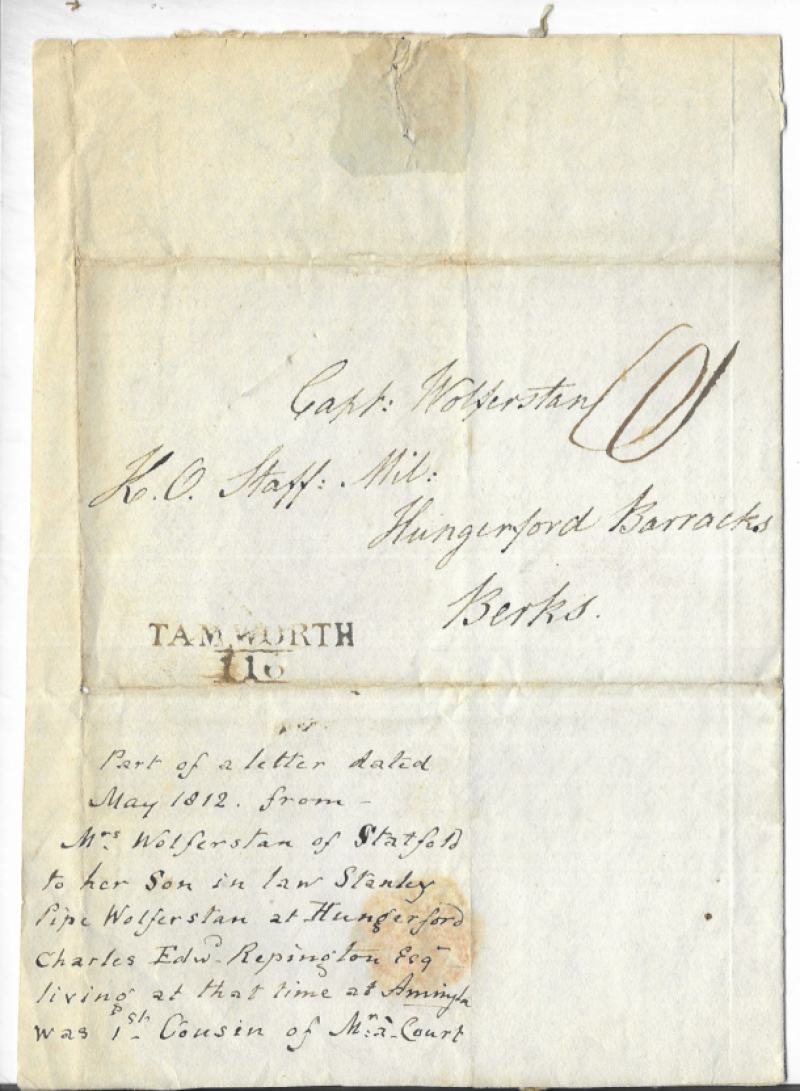 Capt: Wolferstan
K. O. Staff: Mil:
Hungerford Barracks
Berks.
TAMWORTH
116
Part of a letter dated
May 1812. from –
Mrs. Wolferstan of Statfold
to her Son in law Stanley
Pipe Wolferstan at Hungerford
Charles Edwd. Repington Esqr
living at that time at
was 1st Cousin of Mr. à Court